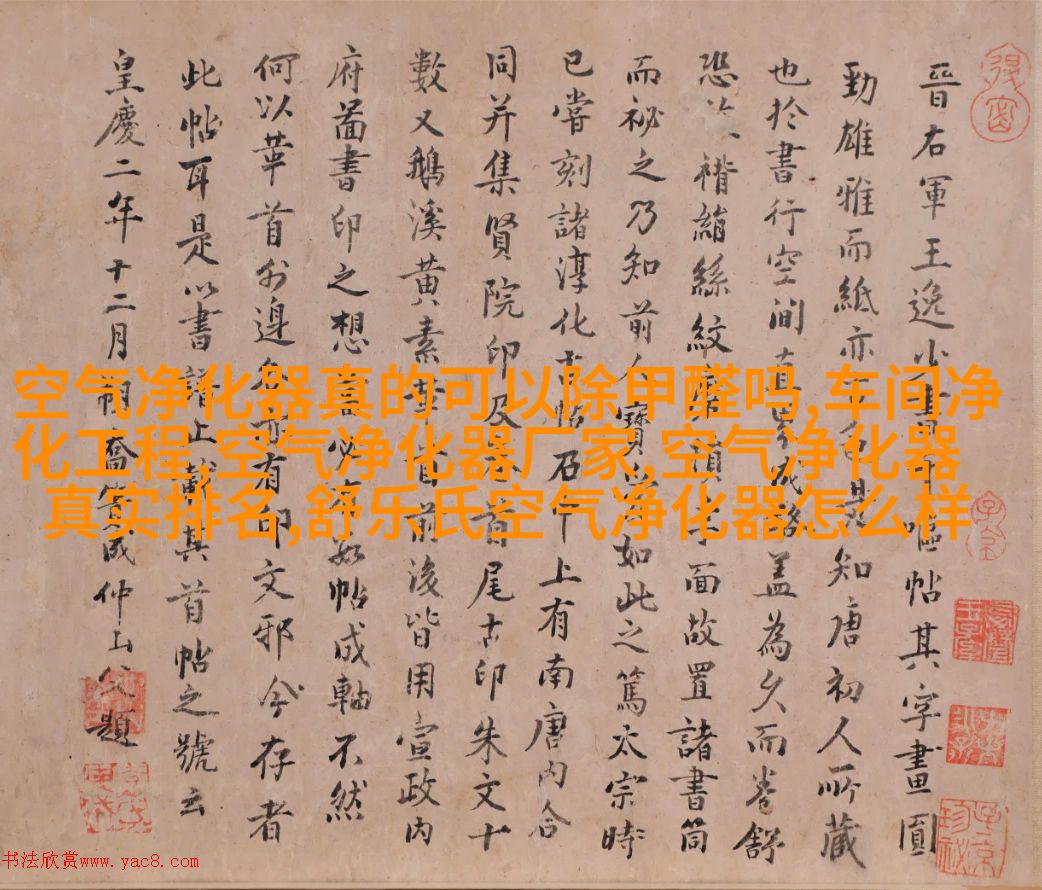 晉右軍王逸少書嘔帖其字畫圓
勁雄雅而紙亦是知唐初人所藏
也於書行空間直界成路蓋為久而卷舒
恐褙縮絲紋損字面故置諸書筒
而祕之乃知前人寶如此之篤太宗時
已嘗刻諸淳化古帖石上有南唐內合
同并集賢院印及卷首尾古印朱文十
數又鵝溪黃素前後皆用宣政內
府圖書印之想當必如帖成軸不然
何以華首外邊各有印文邪今存者
此帖耳是以書諸上蘄其首帖之號云
皇慶二年十二月朔喬簣成仲山父題
空气净化器真的可以除甲醛吗,车间净
化工程,空气净化器厂家,空气净化器
真实排名,舒乐氏空气净化器怎么样
书法欣赏www.yac8.com